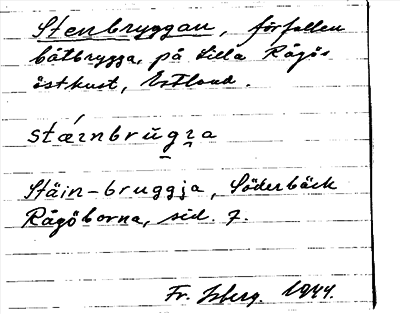 Stenbryggan, förfallen
båtbrygga, på Lilla Rågös
östkust, Estland.
Stäin-bruggja, Söderbäck
Rågöborna, sid. 7.
Fr. Isberg. 1944.